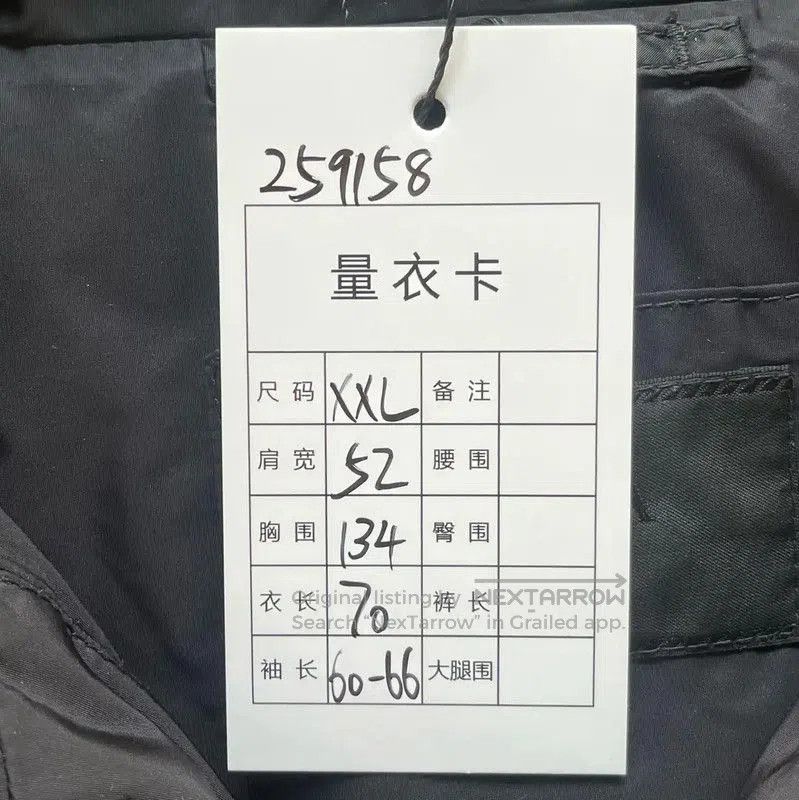 259158
量衣卡
尺码 XXL 备注
肩宽 52 腰围
胸围 134 臀围
衣长 70 裤长
Original listing by NEXTARROW
Search "NexTarrow" in Grailed app.
袖长 60-66 大腿围